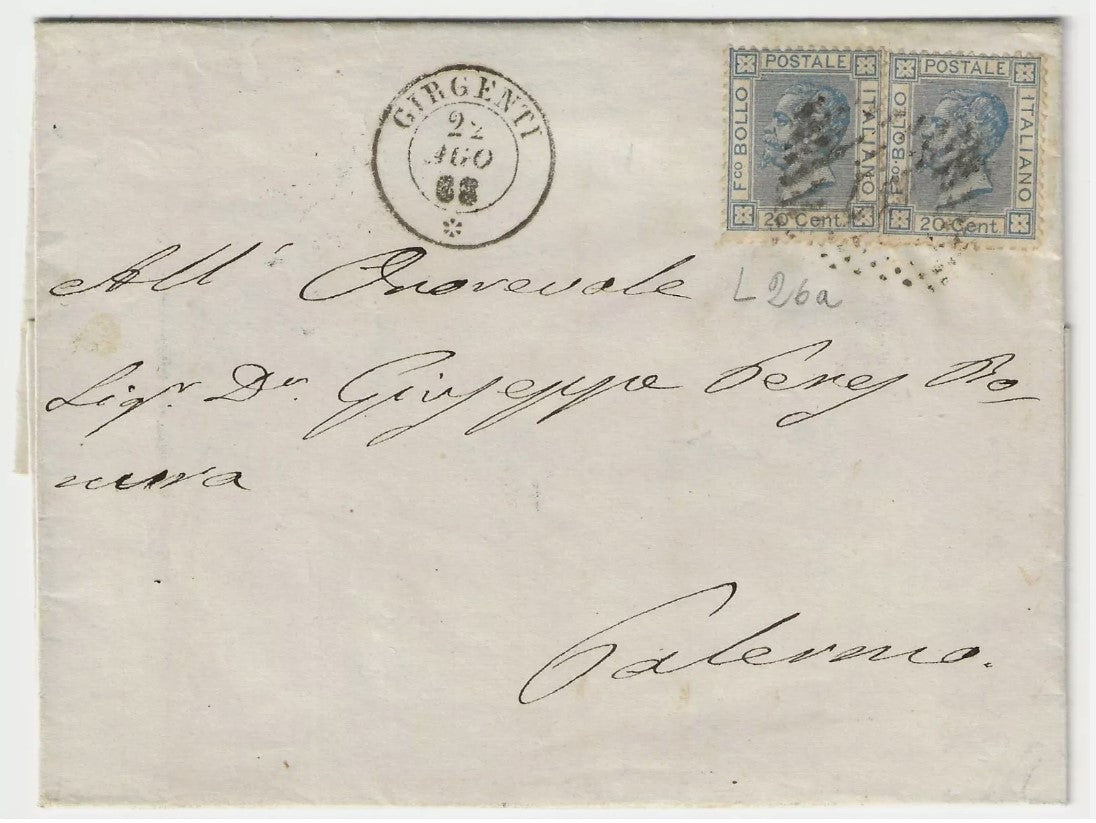 GIRGENTI
22
AGO
68
POSTALE
Fco BOLLO
ITALIANO
20 Cent.
POSTALE
Fco BOLLO
ITALIANO
20 Cent.
All' Onorevole
L26a
Sigr. Dn. Giuseppe Perez
Palermo.